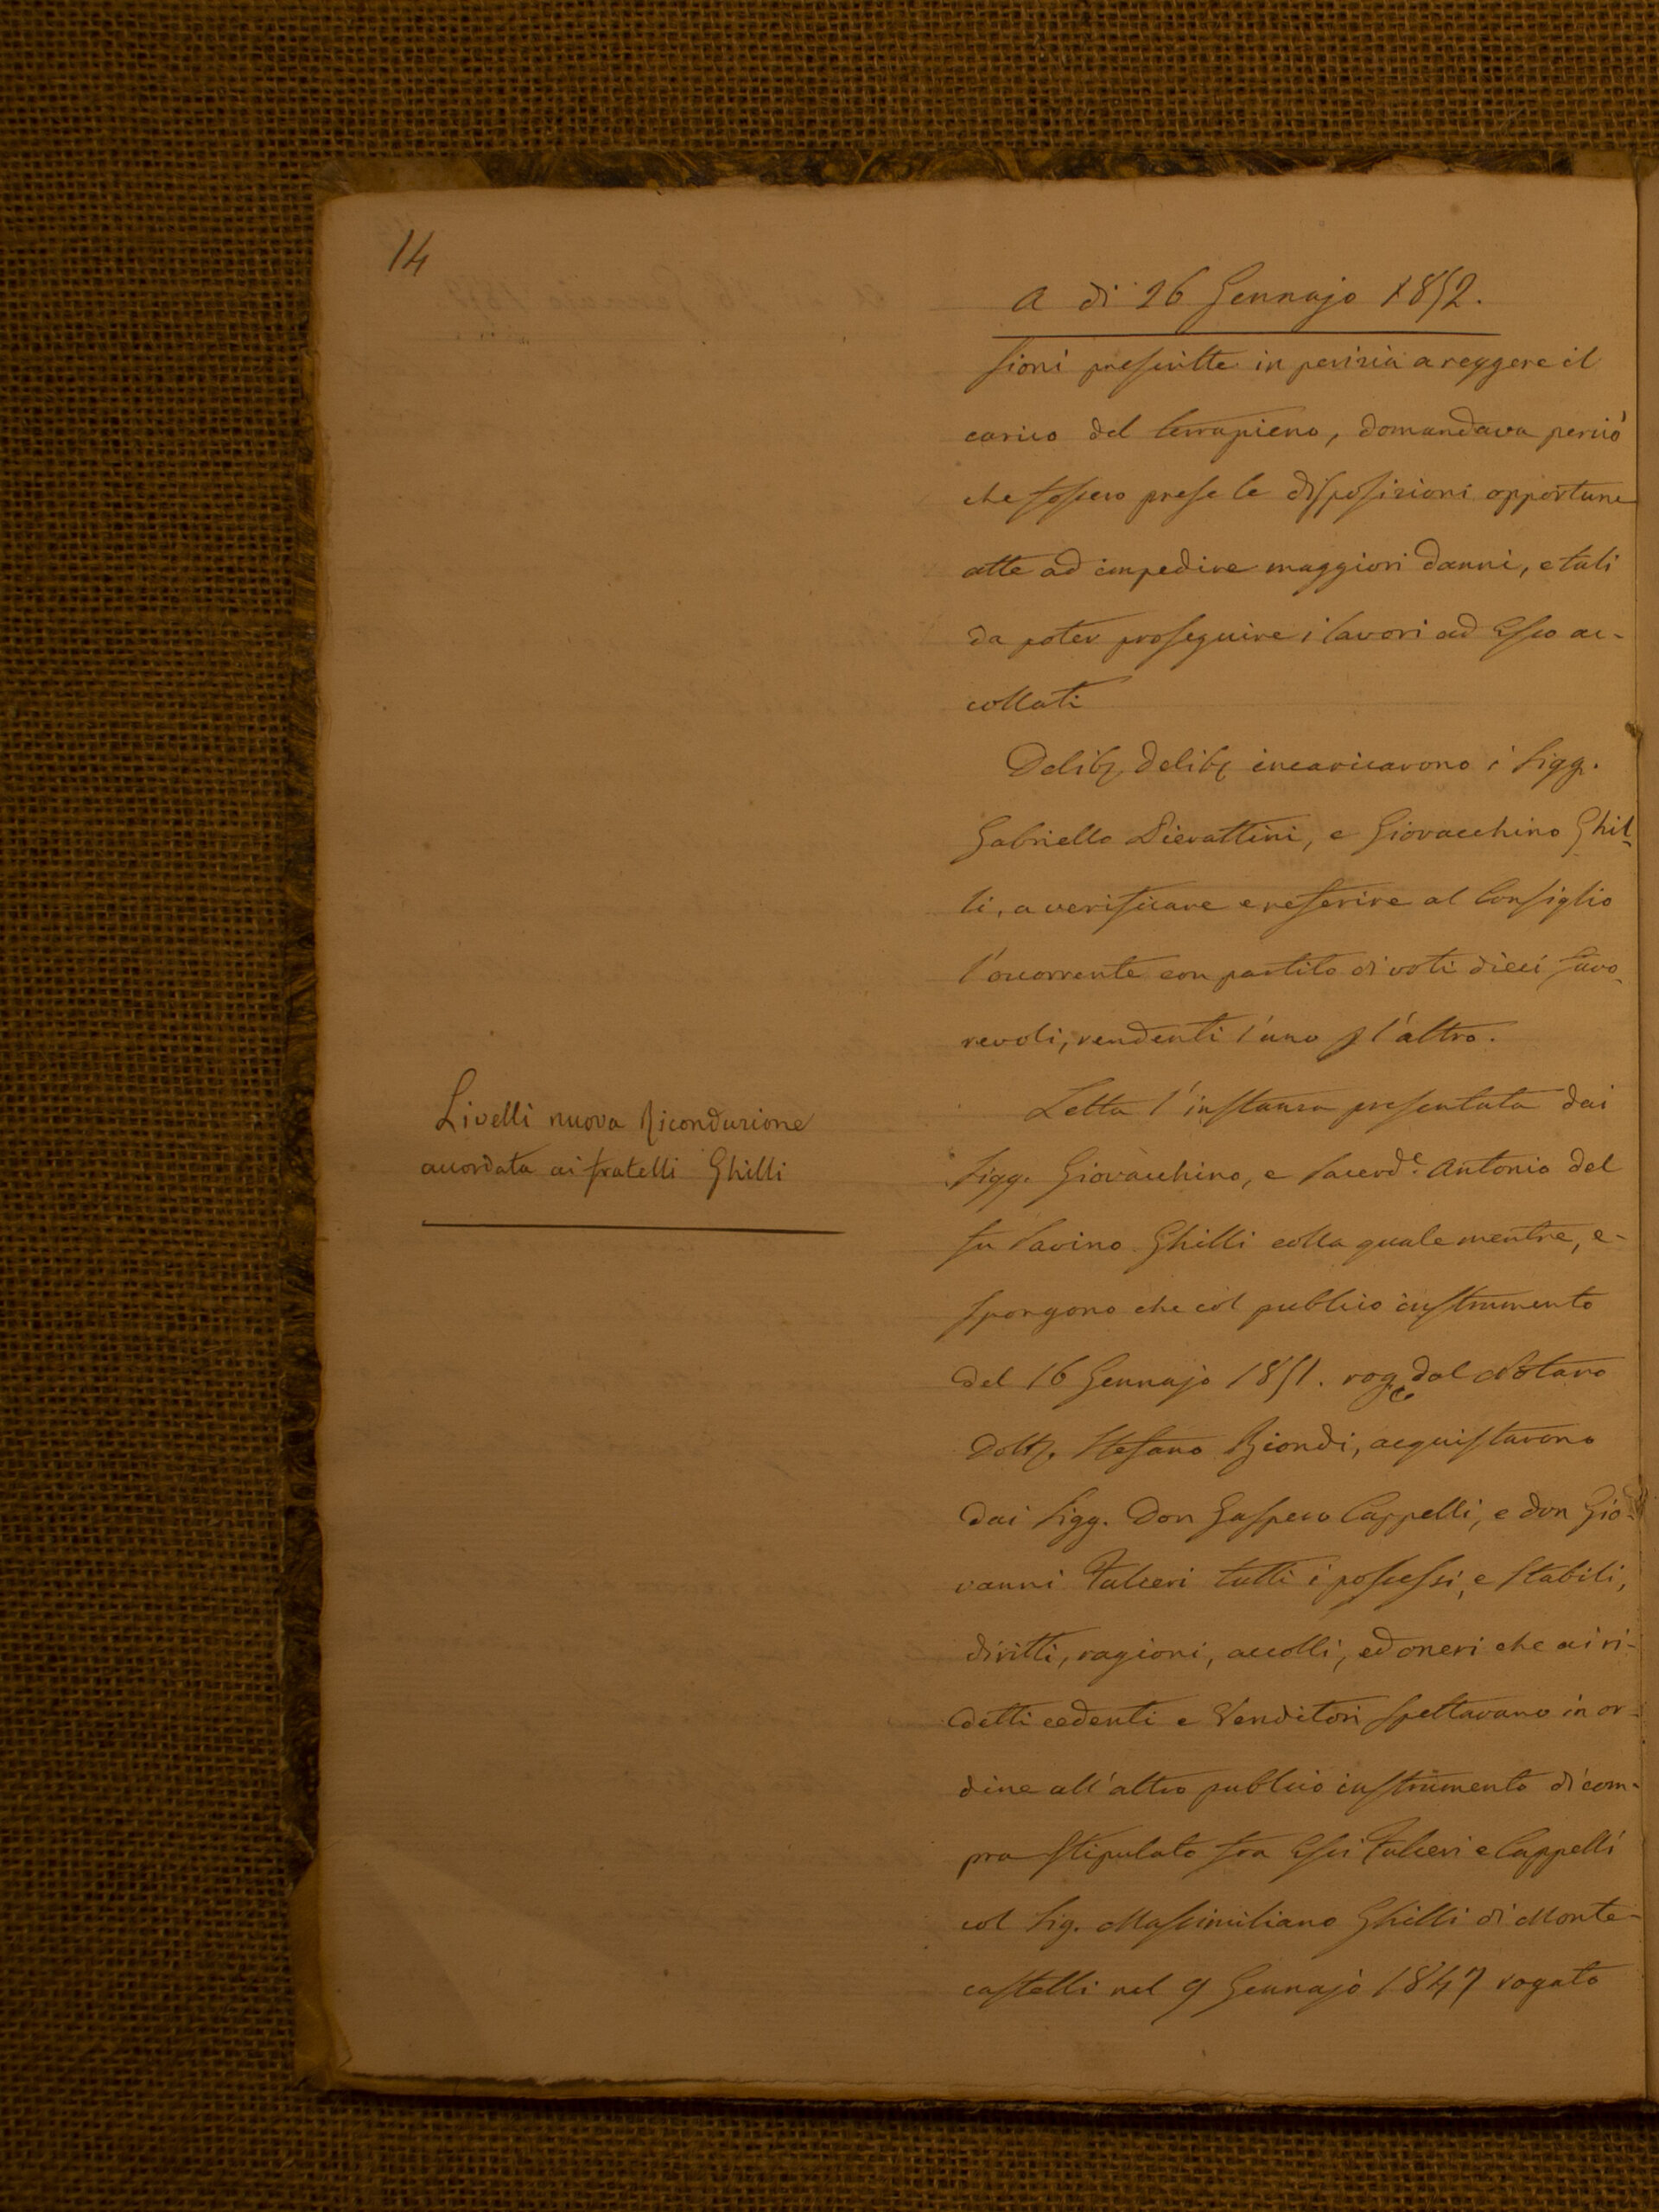 14
A dì 26 Gennajo 1852.
sioni prescritte in perizia a reggere il
carico del terrapieno, domandava perciò
che fossero prese le disposizioni opportune
atte ad impedire maggiori danni, e tali
da poter proseguire i lavori ad Esso ac-
collati
Delib. delib. incaricarono i Sigg.
Gabriello Pierattini, e Giovacchino Ghil-
li, a verificare e referire al Consiglio
l'occorrente con partito di voti dieci favo-
revoli, rendenti l'uno p l'altro.
Livelli nuova Riconduzione
accordata ai fratelli Ghilli
Letta l'instanza presentata dai
Sigg. Giovacchino, e Sacerd.e Antonio del
fu Savino Ghilli colla quale mentre, e-
spongono che col publico instrumento
del 16 Gennajo 1851. rog. dal Notaro
Dott. Stefano Biondi, acquistarono
dai Sigg. Don Gaspero Cappelli, e don Gio-
vanni Fulceri tutti i possessi, e Stabili,
diritti, ragioni, accolli, ed oneri che ai ri-
detti cedenti e Venditori spettavano in or-
dine all'altro publico instrumento di com-
pra stipulato fra Essi Fulceri e Cappelli
col Sig. Massimiliano Ghilli di Monte-
castelli nel 9 Gennajo 1847 rogato